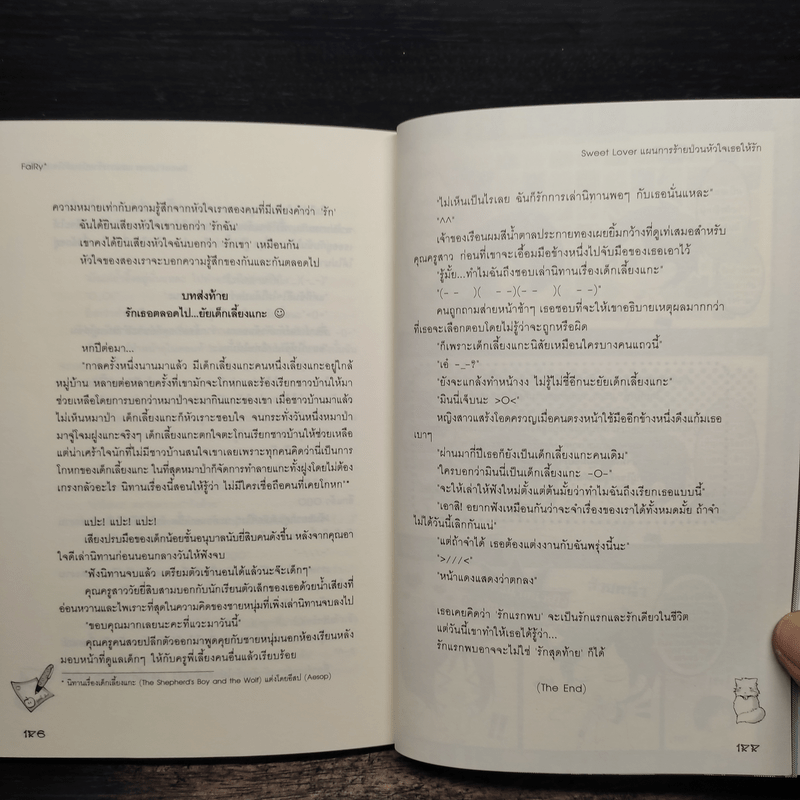 FaiRy*
ความหมายเท่ากับความรู้สึกจากหัวใจเราสองคนที่มีเพียงคำว่า 'รัก'
ฉันได้ยินเสียงหัวใจเขาบอกว่า 'รักฉัน'
เขาคงได้ยินเสียงหัวใจฉันบอกว่า 'รักเขา' เหมือนกัน
หัวใจของสองเราจะบอกความรู้สึกของกันและกันตลอดไป
บทส่งท้าย
รักเธอตลอดไป...ยัยเด็กเลี้ยงแกะ ☺
หกปีต่อมา...
"กาลครั้งหนึ่งนานมาแล้ว มีเด็กเลี้ยงแกะคนหนึ่งเลี้ยงแกะอยู่ใกล้
หมู่บ้าน หลายต่อหลายครั้งที่เขามักจะโกหกและร้องเรียกชาวบ้านให้มา
ช่วยเหลือโดยการบอกว่าหมาป่าจะมากินแกะของเขา เมื่อชาวบ้านมาแล้ว
ไม่เห็นหมาป่า เด็กเลี้ยงแกะก็หัวเราะชอบใจ จนกระทั่งวันหนึ่งหมาป่า
มาจู่โจมฝูงแกะจริงๆ เด็กเลี้ยงแกะตกใจตะโกนเรียกชาวบ้านให้ช่วยเหลือ
แต่น่าเศร้าใจนักที่ไม่มีชาวบ้านสนใจเขาเลยเพราะทุกคนคิดว่านี่เป็นการ
โกหกของเด็กเลี้ยงแกะ ในที่สุดหมาป่าก็จัดการทำลายแกะทั้งฝูงโดยไม่ต้อง
เกรงกลัวอะไร นิทานเรื่องนี้สอนให้รู้ว่า ไม่มีใครเชื่อถือคนที่เคยโกหก"*
แปะ! แปะ! แปะ!
เสียงปรบมือของเด็กน้อยชั้นอนุบาลนับยี่สิบคนดังขึ้น หลังจากคุณอา
ใจดีเล่านิทานก่อนนอนกลางวันให้ฟังจบ
"ฟังนิทานจบแล้ว เตรียมตัวเข้านอนได้แล้วนะจ๊ะเด็กๆ"
คุณครูสาววัยยี่สิบสามบอกกับนักเรียนตัวเล็กของเธอด้วยน้ำเสียงที่
อ่อนหวานและไพเราะที่สุดในความคิดของชายหนุ่มที่เพิ่งเล่านิทานจบลงไป
"ขอบคุณมากเลยนะคะที่แวะมาวันนี้"
คุณครูคนสวยปลีกตัวออกมาพูดคุยกับชายหนุ่มนอกห้องเรียนหลัง
มอบหน้าที่ดูแลเด็กๆ ให้กับครูพี่เลี้ยงคนอื่นแล้วเรียบร้อย
* นิทานเรื่องเด็กเลี้ยงแกะ (The Shepherd's Boy and the Wolf) แต่งโดยอีสป (Aesop)
๑๘๖
Sweet Lover แผนการร้ายป่วนหัวใจเธอให้รัก
"ไม่เห็นเป็นไรเลย ฉันก็รักการเล่านิทานพอๆ กับเธอนั่นแหละ"
"^^"
เจ้าของเรือนผมสีน้ำตาลประกายทองเผยยิ้มกว้างที่ดูเท่เสมอสำหรับ
คุณครูสาว ก่อนที่เขาจะเอื้อมมือข้างหนึ่งไปจับมือของเธอเอาไว้
"รู้มั้ย...ทำไมฉันถึงชอบเล่านิทานเรื่องเด็กเลี้ยงแกะ"
"(- - )( - -)(- - )( - -)"
คนถูกถามส่ายหน้าช้าๆ เธอชอบที่จะให้เขาอธิบายเหตุผลมากกว่า
ที่เธอจะเลือกตอบโดยไม่รู้ว่าจะถูกหรือผิด
"ก็เพราะเด็กเลี้ยงแกะนิสัยเหมือนใครบางคนแถวนี้"
"เอ๋ -_-?"
"ยังจะแกล้งทำหน้างง ไม่รู้ไม่ชี้อีกนะยัยเด็กเลี้ยงแกะ"
"มินนี่เจ็บนะ >O<"
หญิงสาวแสร้งโอดครวญเมื่อคนตรงหน้าใช้มืออีกข้างหนึ่งดึงแก้มเธอ
เบาๆ
"ผ่านมากี่ปีเธอก็ยังเป็นเด็กเลี้ยงแกะคนเดิม"
"ใครบอกว่ามินนี่เป็นเด็กเลี้ยงแกะ -O-"
"จะให้เล่าให้ฟังใหม่ตั้งแต่ต้นมั้ยว่าทำไมฉันถึงเรียกเธอแบบนี้"
"เอาสิ! อยากฟังเหมือนกันว่าจะจำเรื่องของเราได้ทั้งหมดมั้ย ถ้าจำ
ไม่ได้วันนี้เลิกกันแน่"
"แต่ถ้าจำได้ เธอต้องแต่งงานกับฉันพรุ่งนี้นะ"
">///<"
"หน้าแดงแสดงว่าตกลง"
เธอเคยคิดว่า 'รักแรกพบ' จะเป็นรักแรกและรักเดียวในชีวิต
แต่วันนี้เขาทำให้เธอได้รู้ว่า...
รักแรกพบอาจจะไม่ใช่ 'รักสุดท้าย' ก็ได้
(The End)
๑๘๗